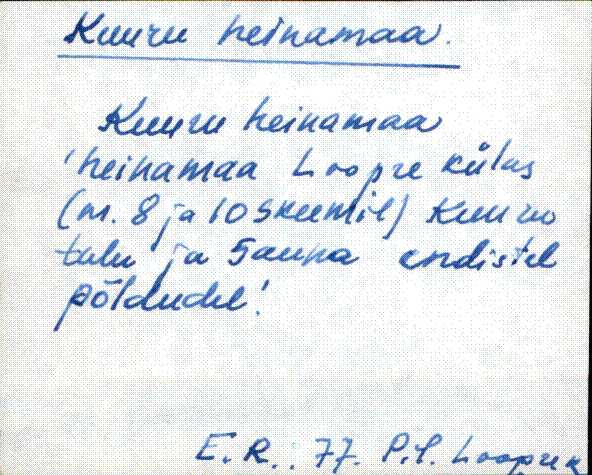 Kuuru heinamaa.
Kuuru heinamaa
'heinamaa Loopre külas
(nr. 8 ja 10 skeemil) Kuuru
talu ja Sauna endistel
põldudel'
E. R. 77. P.-J. Loopre k